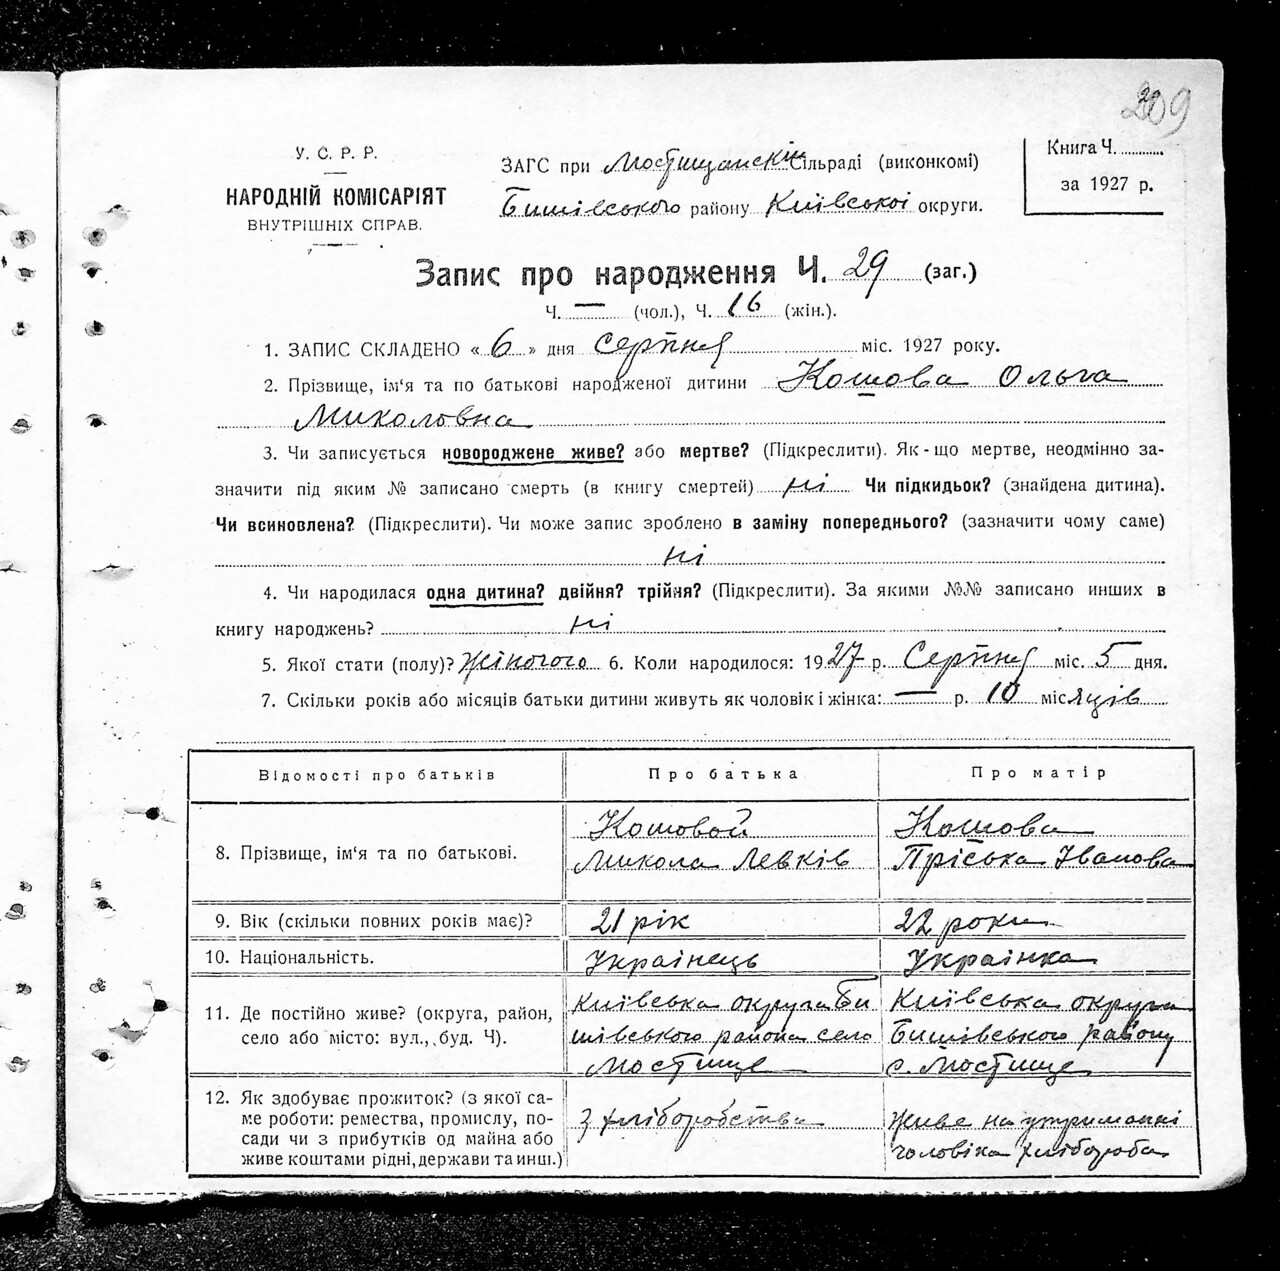 209
У. С. Р. Р.
НАРОДНІЙ КОМІСАРІЯТ
ВНУТРІШНІХ СПРАВ.
ЗАГС при Мостищанскій Сільраді (виконкомі)
Бишівського району Київської округи.
Книга Ч.
за 1927 р.
Запис про народження Ч. 29 (заг.)
Ч. — (чол.), Ч. 16 (жін.).
1. ЗАПИС СКЛАДЕНО « 6 » дня Серпня міс. 1927 року.
2. Прізвище, ім'я та по батькові народженої дитини Кошова Ольга
Миколовна
3. Чи записується новороджене живе? або мертве? (Підкреслити). Як-що мертве, неодмінно за-
значити під яким № записано смерть (в книгу смертей) ні Чи підкидьок? (знайдена дитина).
Чи всиновлена? (Підкреслити). Чи може запис зроблено в заміну попереднього? (зазначити чому саме)
ні
4. Чи народилася одна дитина? двійня? трійня? (Підкреслити). За якими №№ записано инших в
книгу народжень? ні
5. Якої стати (полу)? Жіночого 6. Коли народилося: 1927 р. Серпня міс. 5 дня.
7. Скільки років або місяців батьки дитини живуть як чоловік і жінка: — р. 10 місяців
Відомості про батьків Про батька Про матір
8. Прізвище, ім'я та по батькові. Кошовой Микола Левків Кошова Пріська Іванова
9. Вік (скільки повних років має)? 21 рік 22 роки
10. Національність. Українець Українка
11. Де постійно живе? (округа, район,
село або місто: вул., буд. Ч).
Київська округа Би
шівського района село
Мостище
Київська округа
Бишівського району
с. Мостище
12. Як здобуває прожиток? (з якої са-
ме роботи: ремества, промислу, по-
сади чи з прибутків од майна або
живе коштами рідні, держави та инш.)
з хліборобства
Живе на утриманні
чоловіка хлібороба